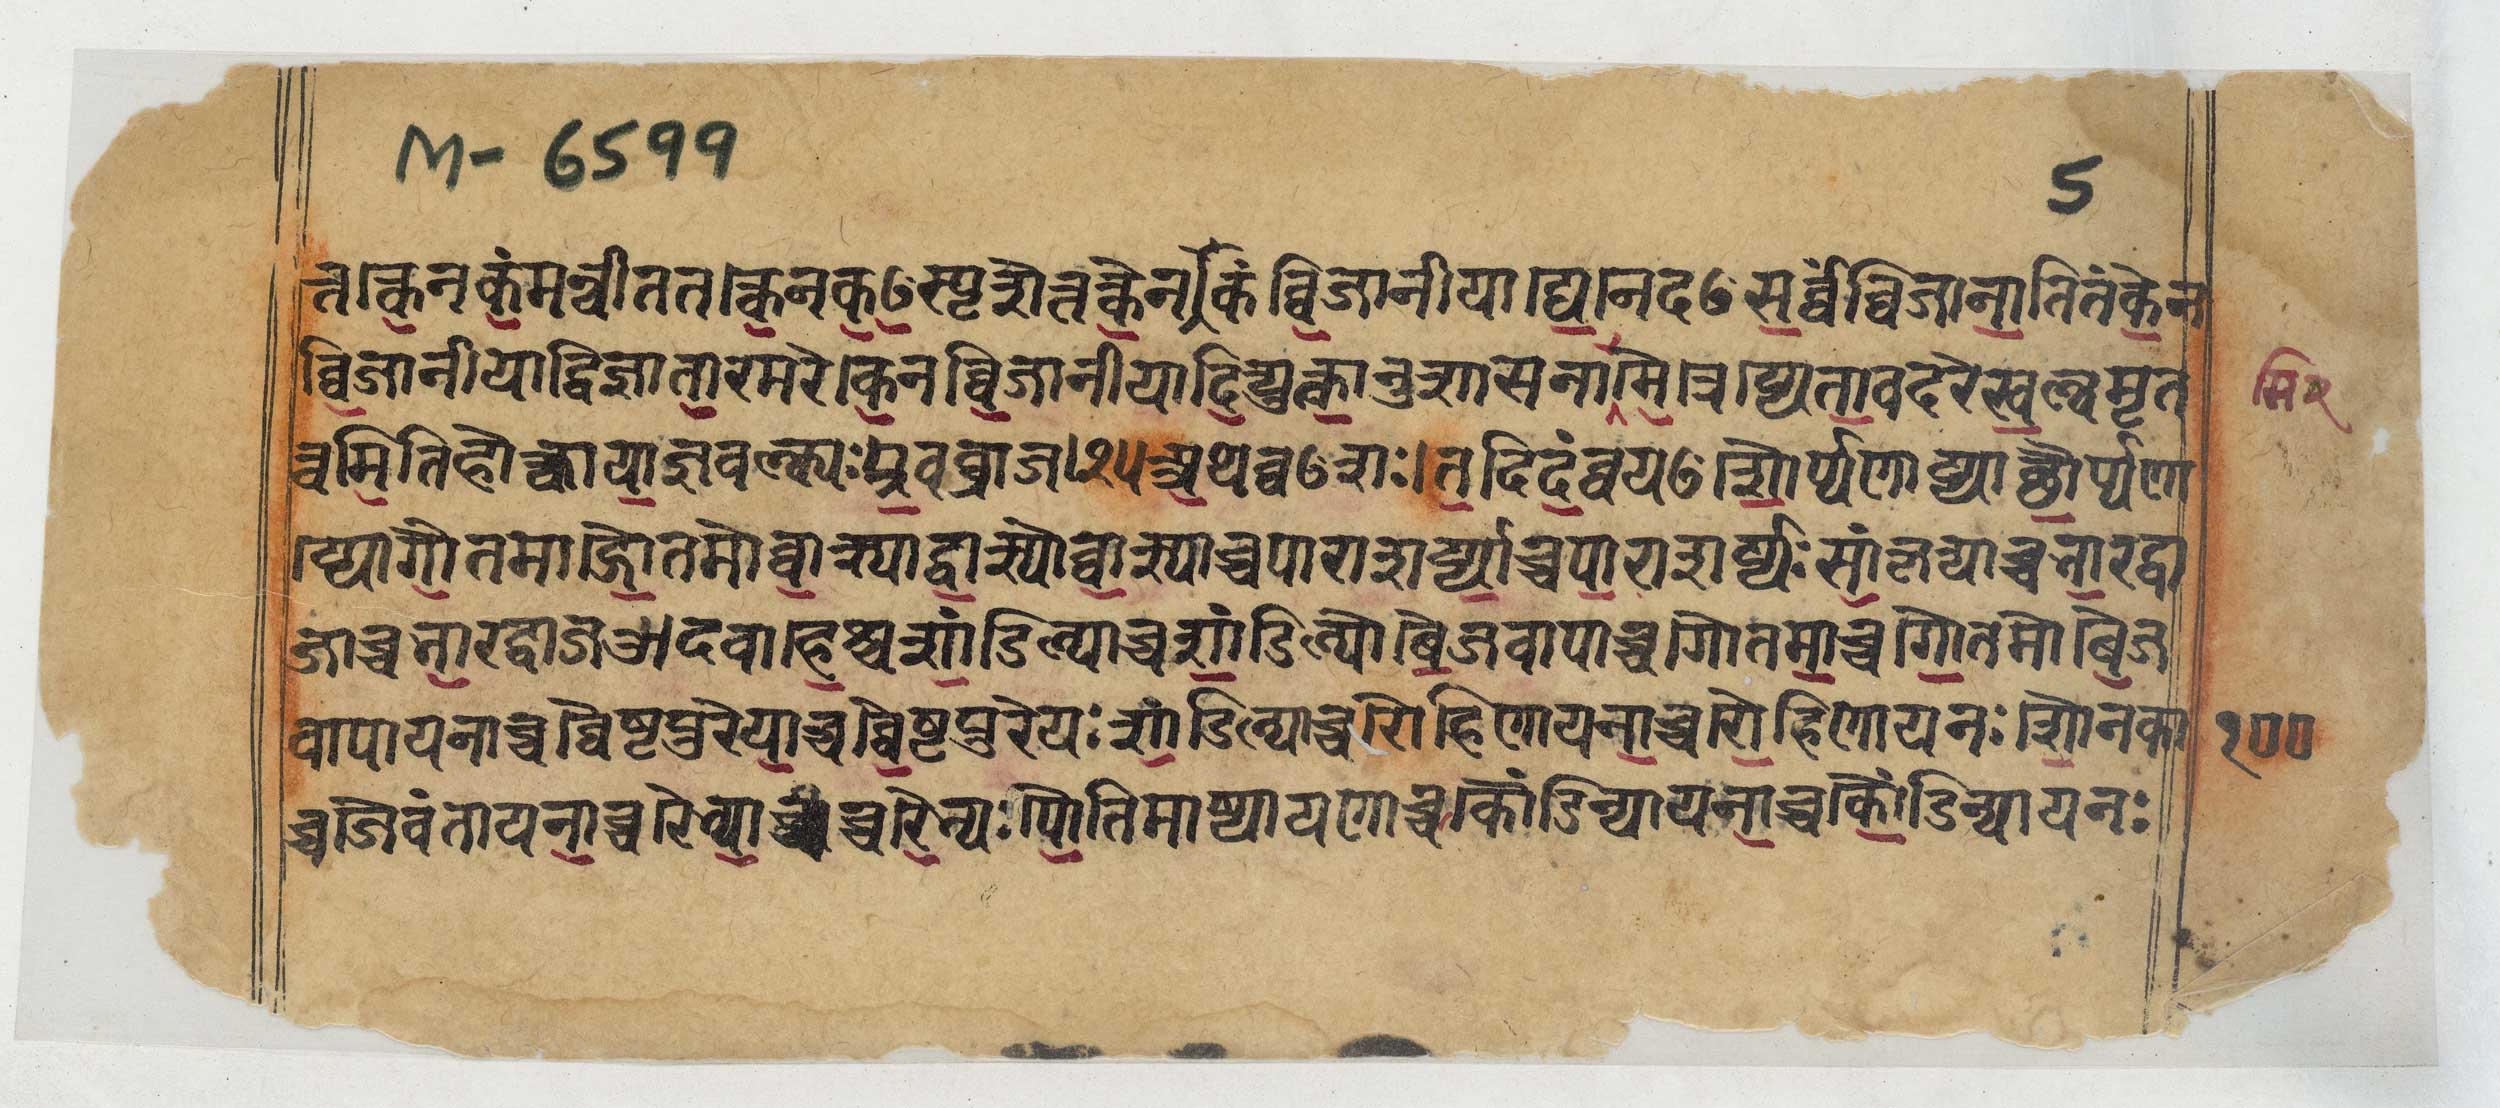 M- 6599
5
त।कनकंमन्वीतत।क्कनकᳪस्पृशेत्तक्केन।किंव्विजानीया।द्ये।नेदᳪसर्व्वंव्विजानातितंकेन
व्विजानीयाद्विज्ञातारमरे।केनव्विजानीयादित्युक्तानुशासनामै।त्रे।य्येतावदरेखल्वमृत
मि२
त्वमितिहोक्त्वायाज्ञवल्क्यःप्रवव्राज।१५अथव्वᳪशः।तदिदंव्वयᳪ।शौर्प्पणाय्याच्छौर्प्पणा
।य्यागौतमाद्गौतमोव्वात्स्याद्वात्स्योव्वात्स्याच्चपाराशर्य्याच्चपाराशर्य्यःसांकृत्याच्चभारद्वा
जाच्चभारद्वाजऔदवाहेश्चशांडिल्याच्चशांडिल्योबैजवापाच्चगौतमाच्चगौतमोबैज
वापायनाच्चव्वैष्टपुरेयाच्चव्वैष्टपुरेयःशांडिल्याच्चरौहिणायनाच्चरौहिणायनःशौनका
१००
च्चजैवंतायनाच्चरैभ्याच्चरैभ्यःपौतिमाष्यायणाच्चकौंडिन्यायनाच्चकौंडिन्यायनः